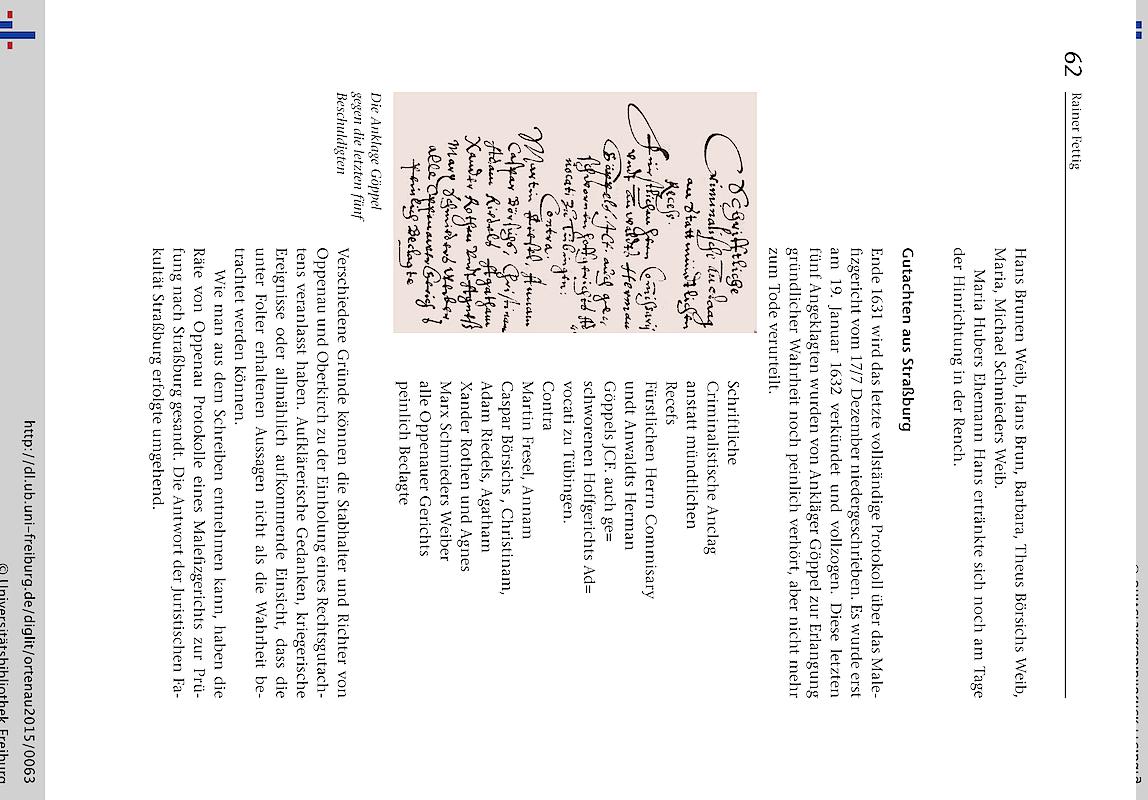 62
Rainer Fettig
Hans Brunen Weib, Hans Brun, Barbara, Theus Börsichs Weib,
Maria, Michael Schmieders Weib.
Maria Hubers Ehemann Hans ertränkte sich noch am Tage
der Hinrichtung in der Rench.
Gutachten aus Straßburg
Ende 1631 wird das letzte vollständige Protokoll über das Male-
fizgericht vom 17/7 Dezember niedergeschrieben. Es wurde erst
am 19. Januar 1632 verkündet und vollzogen. Diese letzten
fünf Angeklagten wurden von Ankläger Göppel zur Erlangung
gründlicher Wahrheit noch peinlich verhört, aber nicht mehr
zum Tode verurteilt.
Schriftliche
Criminalistische Anclag
anstatt mündtlichen
Recefs
Fürstlichen Herrn Commisary
undt Anwaldts Herman
Göppels JCF. auch ge=
schworenen Hoffgerichts Ad=
vocati zu Tübingen.
Contra
Martin Fresel, Annam
Caspar Börsichs , Christinam,
Adam Riedels, Agatham
Xander Rothen und Agnes
Marx Schmieders Weiber
alle Oppenauer Gerichts
peinlich Beclagte
Die Anklage Göppel
gegen die letzten fünf
Beschuldigten
Verschiedene Gründe können die Stabhalter und Richter von
Oppenau und Oberkirch zu der Einholung eines Rechtsgutach-
tens veranlasst haben. Aufklärerische Gedanken, kriegerische
Ereignisse oder allmählich aufkommende Einsicht, dass die
unter Folter erhaltenen Aussagen nicht als die Wahrheit be-
trachtet werden können.
Wie man aus dem Schreiben entnehmen kann, haben die
Räte von Oppenau Protokolle eines Malefizgerichts zur Prü-
fung nach Straßburg gesandt. Die Antwort der Juristischen Fa-
kultät Straßburg erfolgte umgehend.
http://dl.ub.uni-freiburg.de/diglit/ortenau2015/0063
© Universitätsbibliothek Freiburg